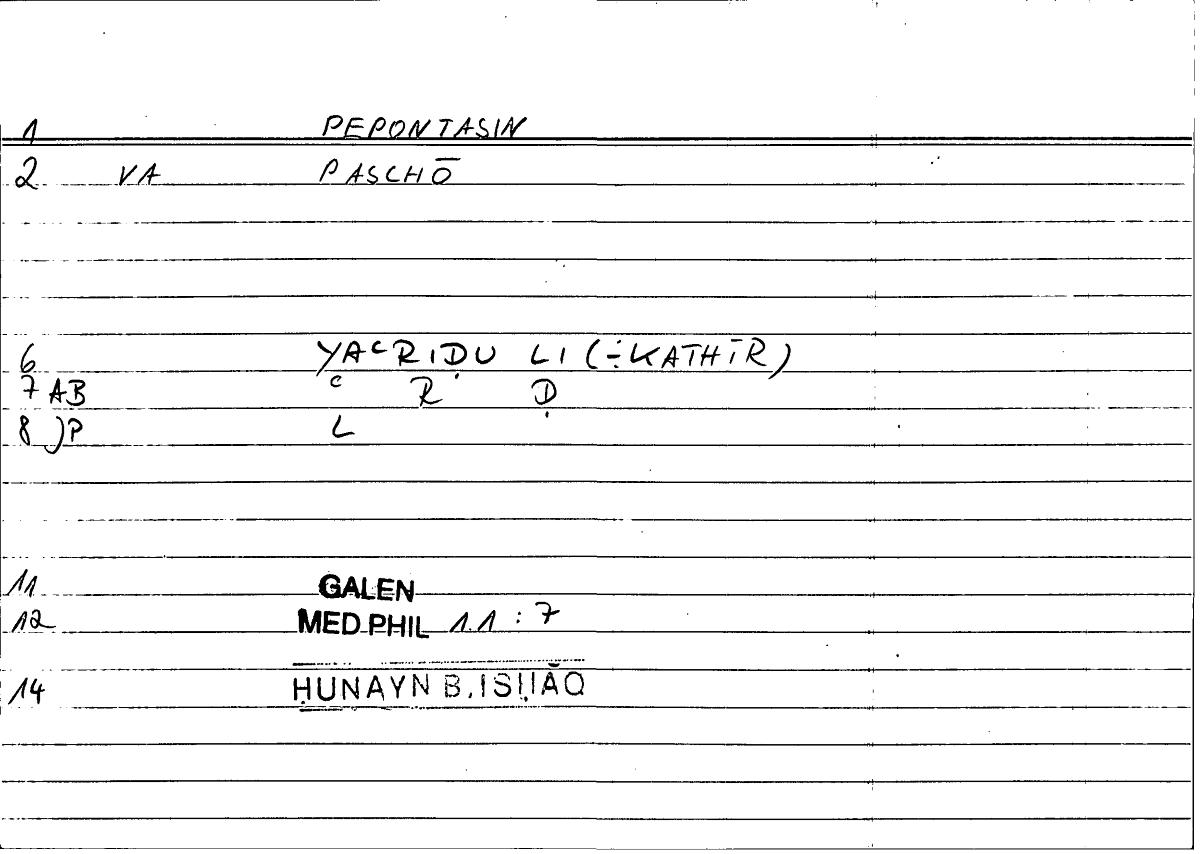 1 PEPONTASIN
2 VA PASCHŌ
6 YAᶜRIḌU LI (÷KATHĪR)
7 AB ᶜ R Ḍ
8 JP L
11 GALEN
12 MED PHIL 1.1 : 7
14 ḤUNAYN B. ISḤĀQ